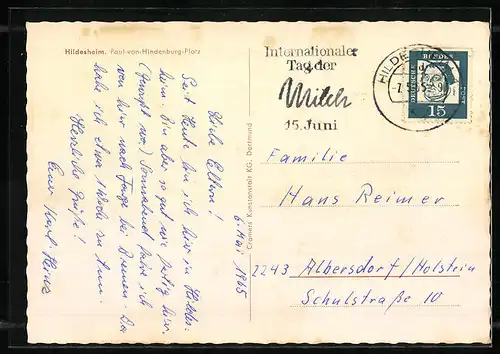 Hildesheim. Paul-von-Hindenburg-Platz
6. Mai 1965
Liebe Eltern!
Seit Heute bin ich hier in Hildes-
heim. Bin aber so gut wie fertig hier.
Sonnabend fahre ich
von hier nach Farge bei Bremen. Da
habe ich etwa 1 Woche zu tun.
Herzliche Grüße!
Euer Karl-Heinz
Cramers Kunstanstalt KG. Dortmund
Internationaler
Tag der
Milch
15. Juni
HILDESHEIM
DEUTSCHE BUNDESPOST
15
Familie
Hans Reimer
2243 Albersdorf/Holstein
Schulstraße 10